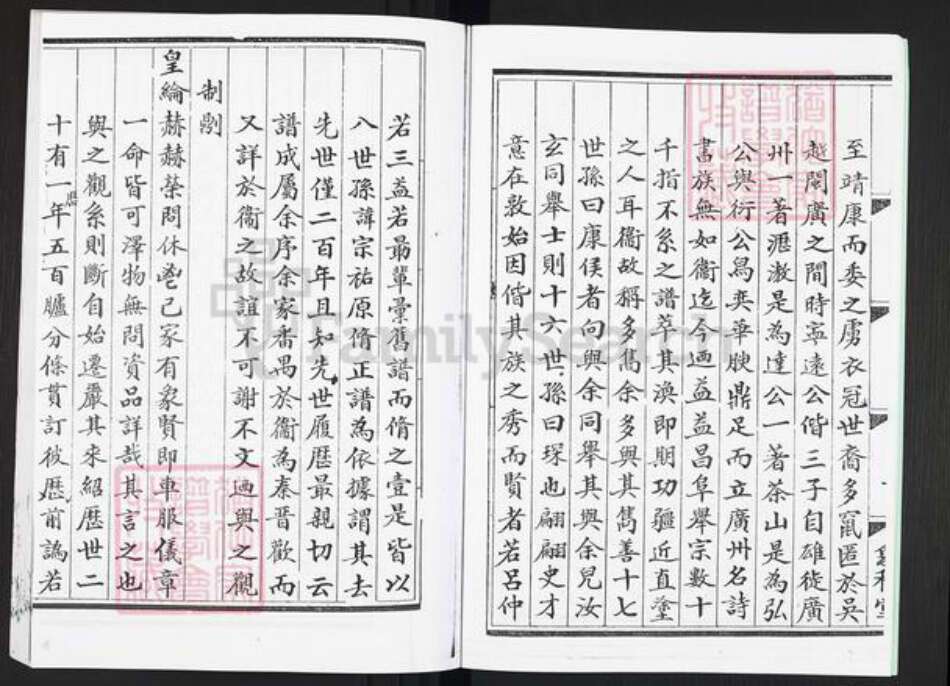 至靖康而委之虜衣冠世裔多竄匿於吳
越閩廣之間時寧遠公偕三子自雄徙廣
州一著瀝滘是為達公一著茶山是為弘
公與衍公鳥奕華腴鼎足而立廣州名詩
書族無如衛迄今迺益益昌阜舉宗數十
千指不系之譜萃其渙即期功疆近直塗
之人耳衛故稱多雋余多與其雋善十七
世孫曰康侯者向與余同舉其與余兄汝
玄同舉士則十六世孫曰琛也翩翩史才
意在敦始因偕其族之秀而賢者若呂仲
若三益若最輩彙舊譜而脩之壹是皆以
八世孫諱宗祐原脩正譜為依據謂其去
先世僅二百年且知先世履歷最親切云
譜成屬余序余家番禺於衛為秦晉歡而
又詳於衛之故誼不可謝不文迺與之觀
制
皇綸赫赫榮問休鬯已家有象賢即車服儀章
一命皆可澤物無問資品詳哉其言之也
與之觀系則斷自始遷嚴其來紹歷世二
十有一年五百臚分條貫訂彼歷前譌若
FamilySearch